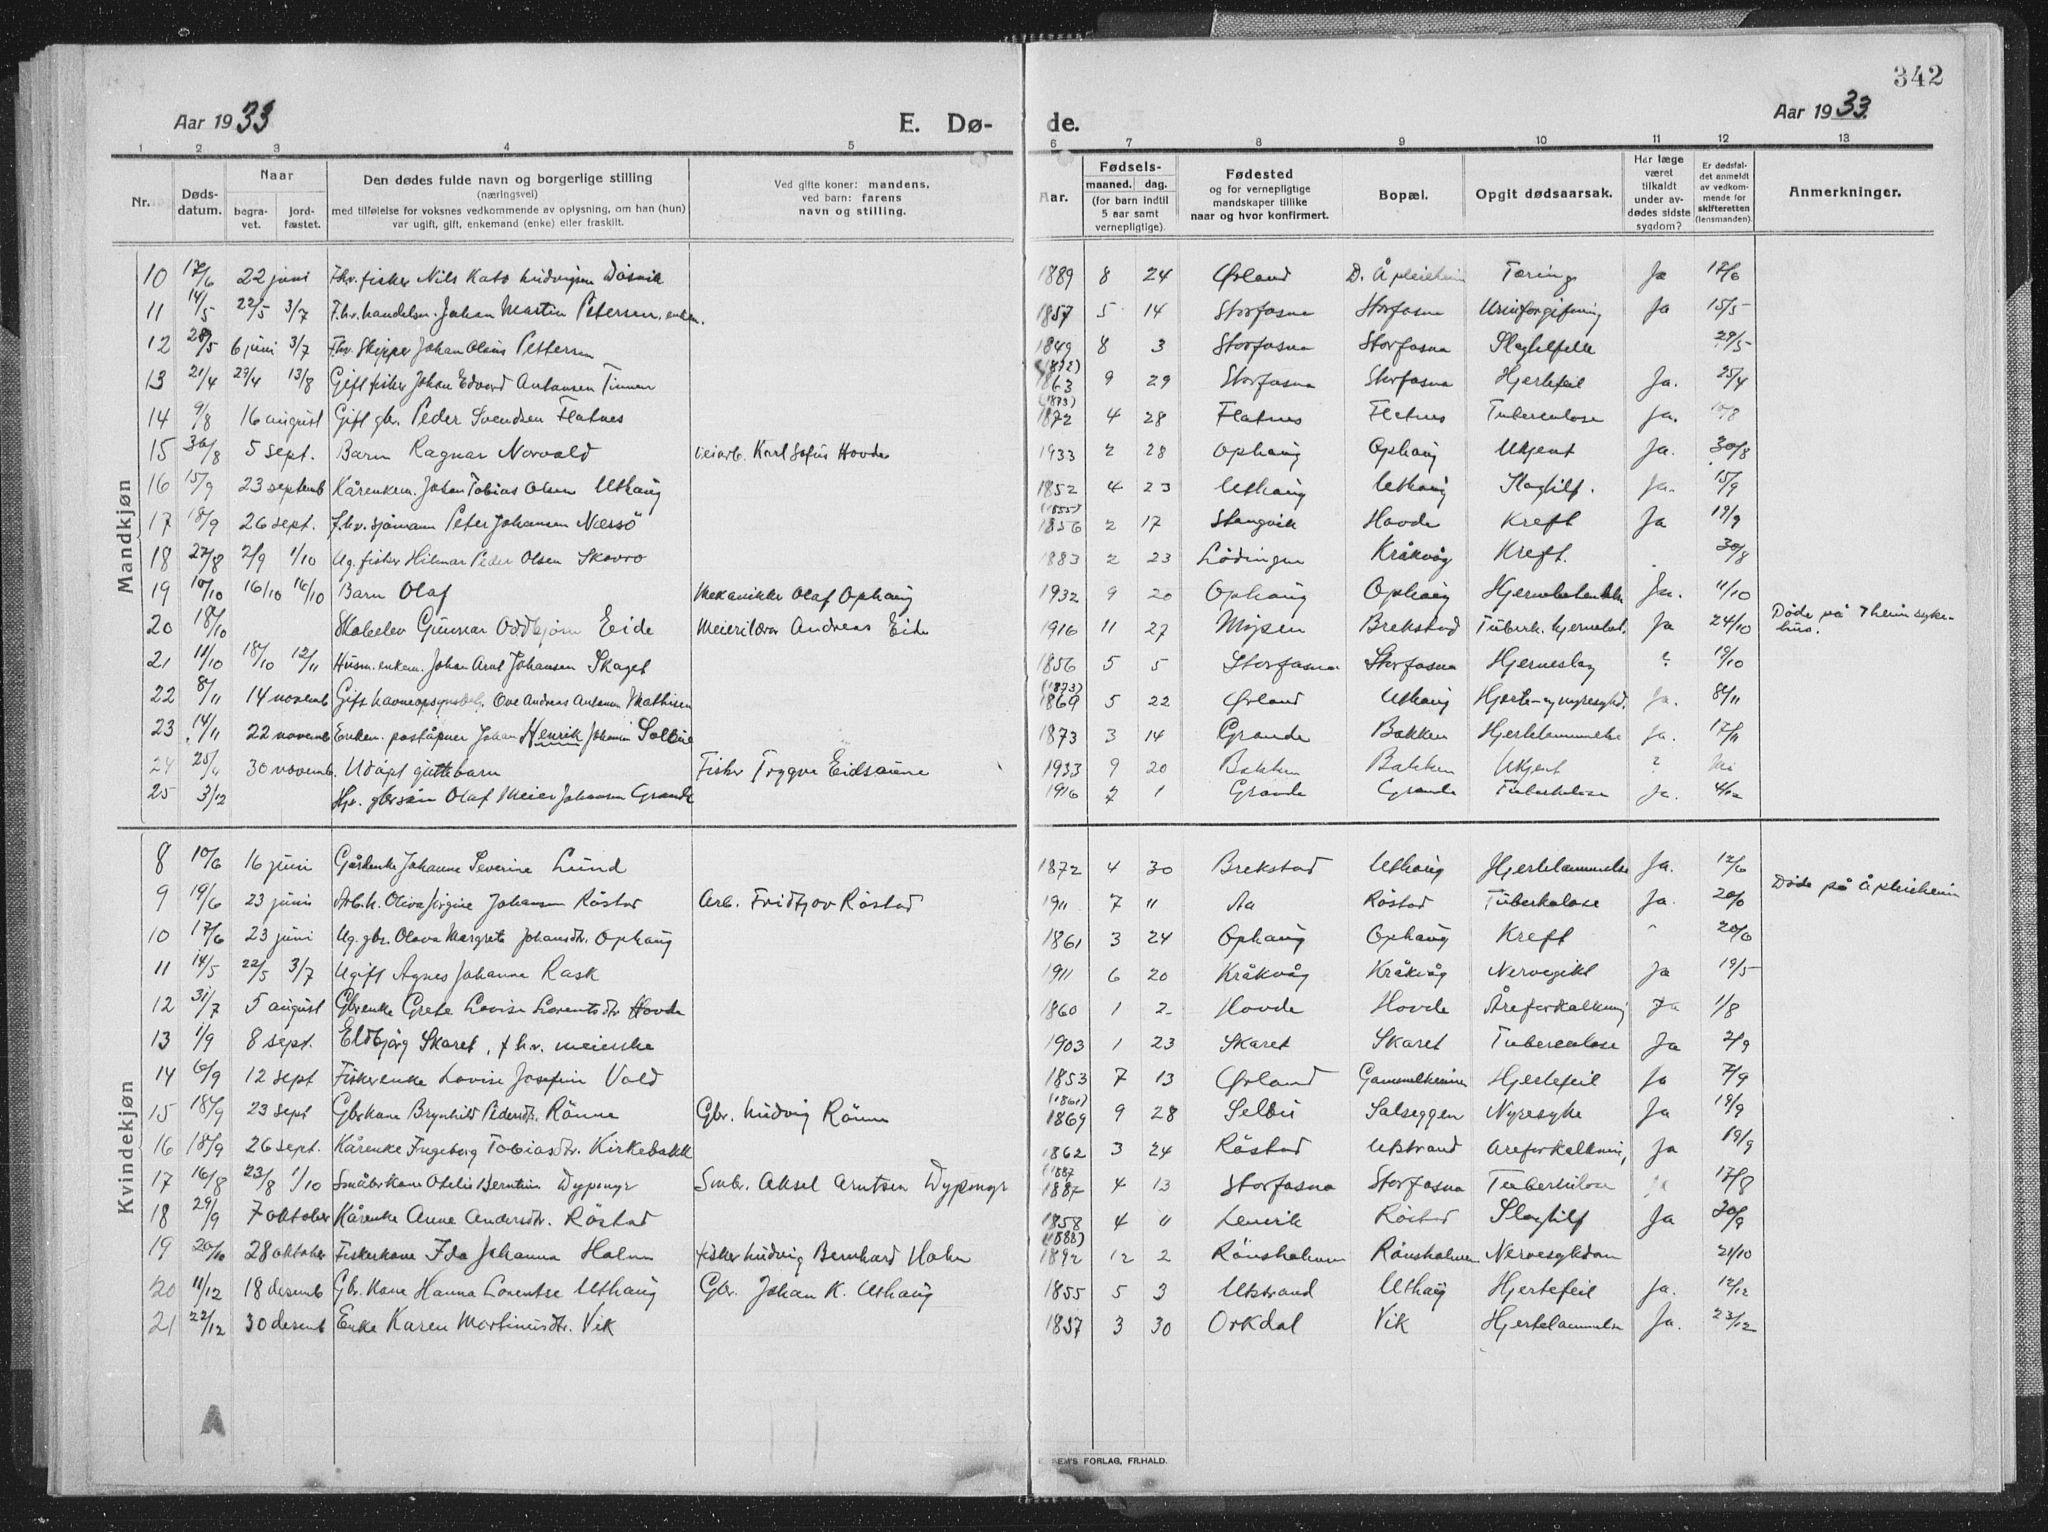 342
Aar 1933 E. Dø- de. Aar 1933.
1 2 3 4 5 6 7 8 9 10 11 12 13
Nr. Døds-datum. Naar begra-vet. jord-fæstet. Den dødes fulde navn og borgerlige stilling (næringsvei) med tilføielse for voksnes vedkommende av oplysning, om han (hun) var ugift, gift, enkemand (enke) eller fraskilt. Ved gifte koner: mandens, ved barn: farens navn og stilling. Aar. Fødsels- maaned. dag. (for barn indtil 5 aar samt vernepligtige). Fødested og for vernepligtige mandskaper tillike naar og hvor konfirmert. Bopæl. Opgit dødsaarsak. Har læge været tilkaldt under av-dødes sidste sygdom? Er dødsfal-det anmeldt av vedkom-mende for skifteretten (lensmanden). Anmerkninger.
Mandkjøn
10 17/6 22 juni Fhv. fisker Nils Kato Ludvigsen Døsvik 1889 8 24 Ørland D. Å pleieheim Tæring Ja 17/6
11 14/5 22/5 3/7 F.hv. handelsm. Johan Martin Petersen, enkem. 1857 5 14 Storfosna Storfosna Urinforgiftning Ja 15/5
12 28/5 6 juni 3/7 Fhv. Skipper Johan Olaus Pettersen 1849 8 3 Storfosna Storfosna Slagtilfelle 29/5
13 21/4 29/4 13/8 Gift fisker Johan Edvard Antonsen Tinnen (1872) 1863 9 29 Storfosna Storfosna Hjertefeil Ja. 25/4
14 9/8 16 august Gift gbr. Peder Svendsen Flatnes (1873) 1872 4 28 Flatnes Flatnes Tuberculose Ja. 10/8
15 30/8 5 sept. Barn Ragnar Norvald veiarb. Karl Sofus Hovde 1933 2 28 Ophaug Ophaug Ukjent Ja. 30/8
16 15/9 23 septemb Kårenkem. Johan Tobias Olsen Uthaug 1852 4 23 Uthaug Uthaug Slagtilf. Ja. 15/9
17 18/9 26 sept. F.hv. sjömann Peter Johansen Næssö (1855) 1856 2 17 Stangvik Hovde Kreft Ja 19/9
18 27/8 2/9 1/10 Ug. fisker Hilmar Peder Olsen Skavro 1883 2 23 Lödingen Kråkvåg Kreft. 30/8
19 10/10 16/10 16/10 Barn Olaf Mekanikke Olaf Ophaug 1932 9 20 Ophaug Ophaug Ja. 11/10
20 18/10 Skoleelev Gunnar Oddbjørn Eide Meierilærer Andreas Eide 1916 11 27 Brekstad Tuberk. hjernebet. Ja 24/10 Døde på Tr.heim syke-hus.
21 11/10 18/10 12/11 Husm. enkem. Johan Arnt Johansen Skaget 1856 5 5 Storfosna Storfosna Hjerneslag ? 19/10
22 8/11 14 novemb Gift havneopsynsbetj. Ove Andreas Antonsen Mathisen (1873) 1869 5 22 Ørland Uthaug Hjerte- og nyresykd. Ja. 8/11
23 14/11 22 novemb Enkem. poståpner Johan Henrik Johansen Solbue 1873 3 14 Grande Bakken Hjertelammelse Ja. 17/11
24 25/11 30 novemb. Udöpt guttebarn Fisker Trygve Eidsaune 1933 9 20 Bakken Bakken Ukjent ? Nei
25 3/12 Hjv. gbrsön Olaf Meier Johansen Grande 1916 7 1 Grande Grande Tuberkulose Ja. 4/12
Kvindekjøn
8 10/6 16 juni Gårdenke Johanne Severine Lund 1872 4 30 Brekstad Uthaug Hjertelammelse Ja. 12/6
9 19/6 23 juni Arb.k. Oliva Jörgine Johansen Röstad Arb. Fridtjov Röstad 1911 7 11 Aa Röstad Tuberkolose Ja. 20/6 Døde på Å pleieheim
10 17/6 23 juni Ug. gbr. Olava Margrete Johansdtr. Ophaug 1861 3 24 Ophaug Ophaug Kreft " 20/6
11 14/5 22/5 3/7 Ugift Agnes Johanne Rask 1911 6 20 Kråkvåg Kråkvåg Nervegikt Ja 19/5
12 31/7 5 august Gbrenke Grete Lovise Lorentsdtr Hovde 1860 1 2 Hovde Hovde Åreforkalkning Ja 1/8
13 1/9 8 sept. Eldbjörg Skaret, fhv. meierske 1903 1 23 Skaret Skaret Tuberculose Ja 2/9
14 6/9 12 sept Fiskerenke Lovise Josefine Vold 1853 7 13 Ørland Gammelheimen Hjertefeil Ja 7/9
15 18/9 23 sept Gbrkone Brynhild Pedersdtr. Rönne Gbr. Ludvig Rönne (1861) 1869 9 28 Selbu Salseggen Nyresyke Ja 19/9
16 18/9 26 sept. Kårenke Ingeborg Tobiasdtr. Kirkebakk 1862 3 24 Röstad Utstrand Areforkalkning Ja 19/9
17 16/8 23/8 1/10 Småbrkone Otelie Berntine Dypengr Smbr. Aksel Arntsen Dypengr (1887 1887 4 13 Storfosna Storfosna Tuberkulose Ja 17/8
18 29/9 7 oktober Kårenke Anne Andersdtr. Röstad 1858 4 11 Lensvik Röstad Slagtilf Ja 30/9
19 20/10 28 oktober Fiskerkone Ida Johanna Holm fisker Ludvig Bernhard Holm (1888) 1892 12 2 Rönsholmen Rönsholmen Nervesykdom 21/10
20 11/12 18 desemb Gbr. kone Hanna Lorentse Uthaug Gbr. Johan K. Uthaug 1855 5 3 Utstrand Uthaug Hjertefeil Ja. 12/12
21 22/12 30 desemb Enke Karen Martinusdtr. Vik 1857 3 30 Orkdal Vik Hjertelammelse Ja. 23/12
A
SEM'S FORLAG, FR.HALD.